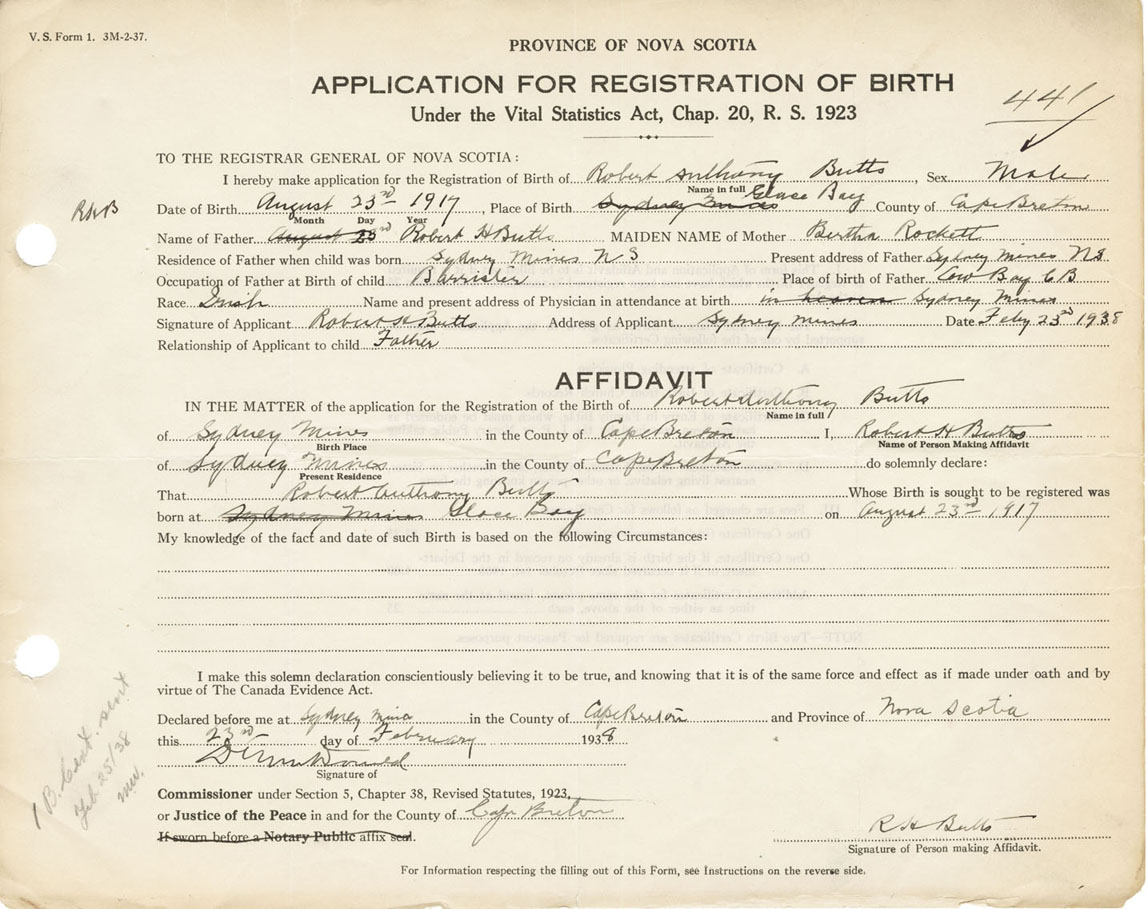 V. S. Form 1. 3M-2-37.
PROVINCE OF NOVA SCOTIA
APPLICATION FOR REGISTRATION OF BIRTH
441
Under the Vital Statistics Act, Chap. 20, R. S. 1923
TO THE REGISTRAR GENERAL OF NOVA SCOTIA:
I hereby make application for the Registration of Birth of Robert Anthony Butts, Sex Male
Name in full
RHB
Date of Birth August 23rd 1917, Place of Birth Sydney Mines Glace Bay County of Cape Breton
Month Day Year
Name of Father August 23rd Robert H Butts MAIDEN NAME of Mother Bertha Rockett
Residence of Father when child was born Sydney Mines N S Present address of Father Sydney Mines N S
Occupation of Father at Birth of child Barrister Place of birth of Father Cow Bay C B
Race Irish Name and present address of Physician in attendance at birth in heaven Sydney Mines
Signature of Applicant Robert H Butts Address of Applicant Sydney Mines Date Feby 23rd 1938
Relationship of Applicant to child Father
AFFIDAVIT
IN THE MATTER of the application for the Registration of the Birth of Robert Anthony Butts
Name in full
of Sydney Mines in the County of Cape Breton I, Robert H Butts
Birth Place Name of Person Making Affidavit
of Sydney Mines in the County of Cape Breton do solemnly declare:
Present Residence
That Robert Anthony Butts Whose Birth is sought to be registered was
born at Sydney Mines Glace Bay on August 23rd 1917
My knowledge of the fact and date of such Birth is based on the following Circumstances:
I make this solemn declaration conscientiously believing it to be true, and knowing that it is of the same force and effect as if made under oath and by
virtue of The Canada Evidence Act.
Declared before me at Sydney Mines in the County of Cape Breton and Province of Nova Scotia
this 23rd day of February 1938
Signature of
Commissioner under Section 5, Chapter 38, Revised Statutes, 1923,
or Justice of the Peace in and for the County of Cape Breton
If sworn before a Notary Public affix seal.
R H Butts
Signature of Person making Affidavit.
For Information respecting the filling out of this Form, see Instructions on the reverse side.
1 B. Cert. sent
Feb. 25/38